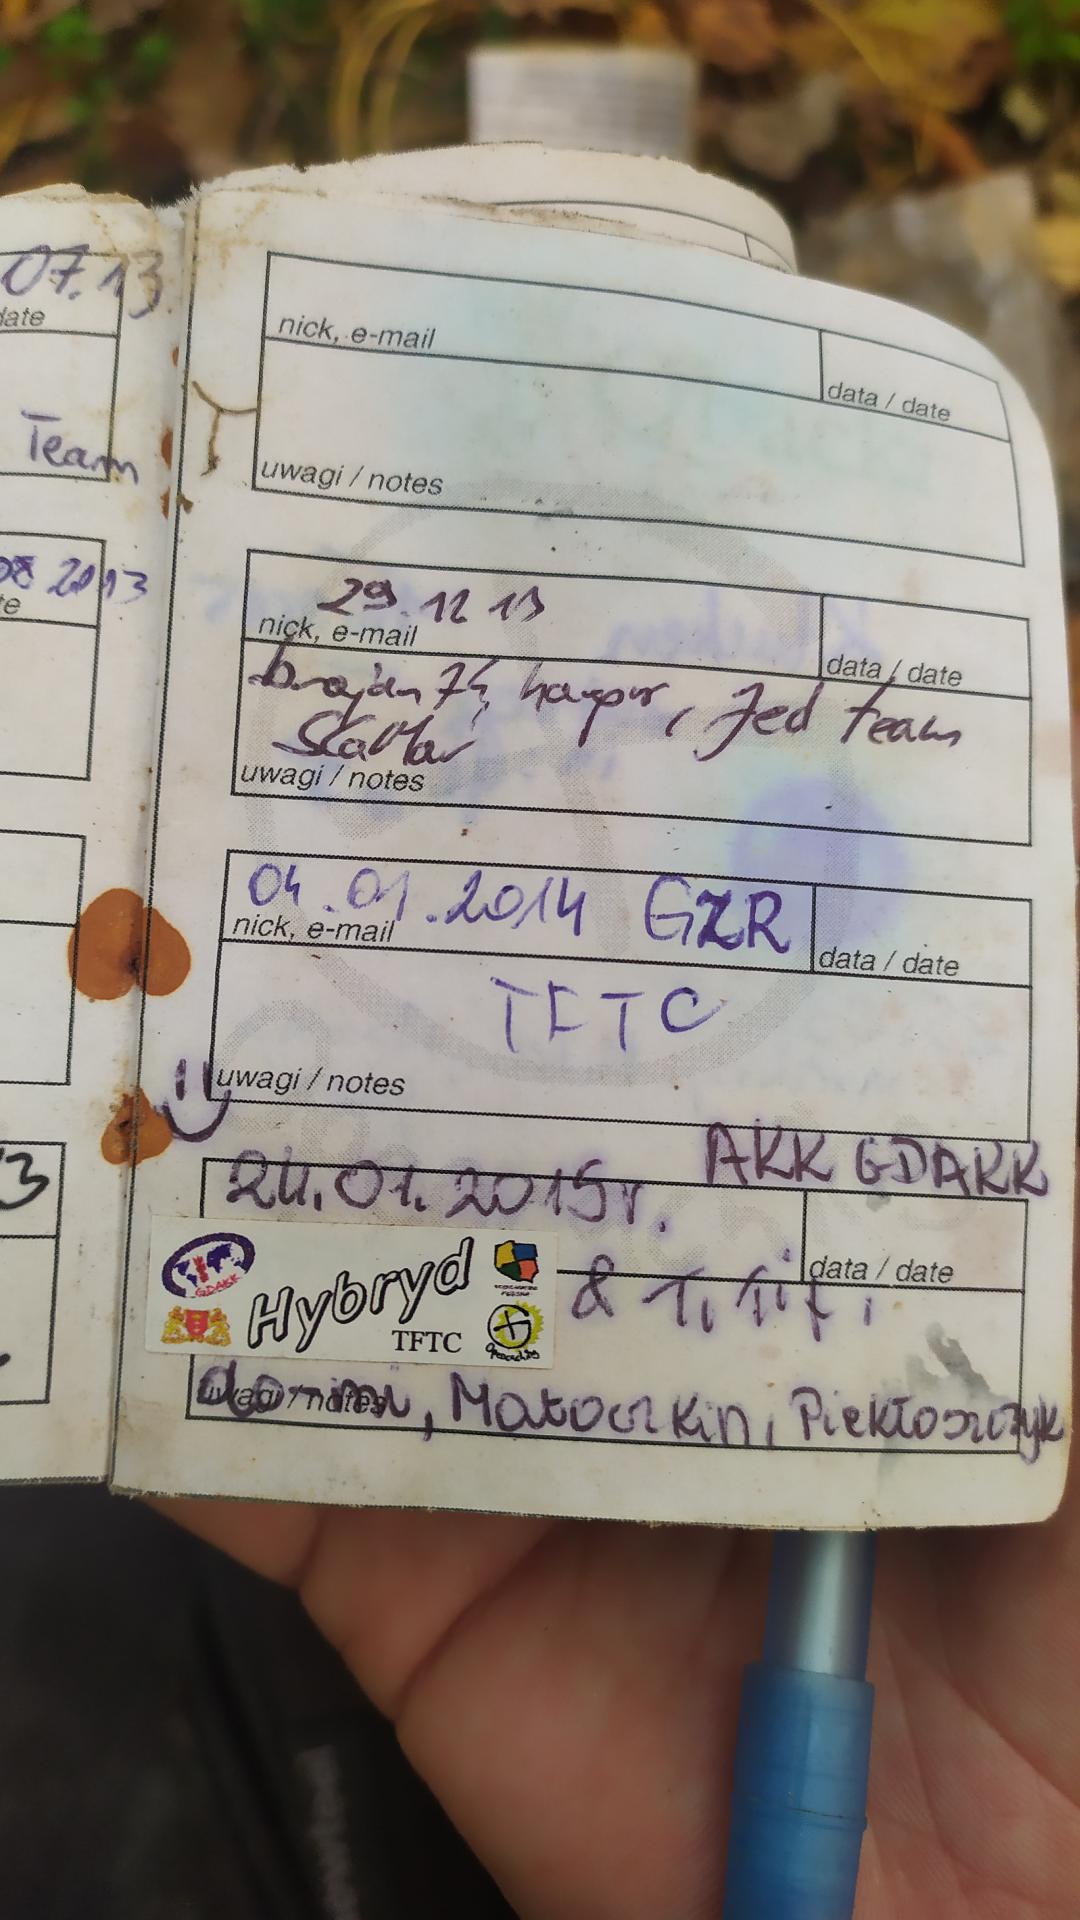 07.13
date
Team
08 2013
te
3
nick, e-mail
data / date
uwagi / notes
29.12 13
nick, e-mail
data / date
brojan74, harpur, Jed team
uwagi / notes
04.01.2014 GZR
nick, e-mail
data / date
TFTC
uwagi / notes
AKK GDAKK
24.01.2015r.
data / date
GDAKK
Hybryd
TFTC
& T.
uwagi / notes
, Matoczkin, Piekłoszczyk